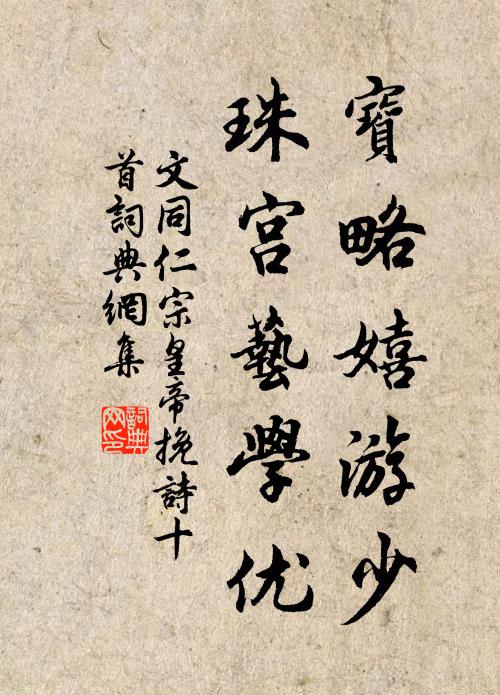 寶略嬉游少
珠宫藝學优
文同仁宗皇帝挽詩十
首詞典網集
詞典网印